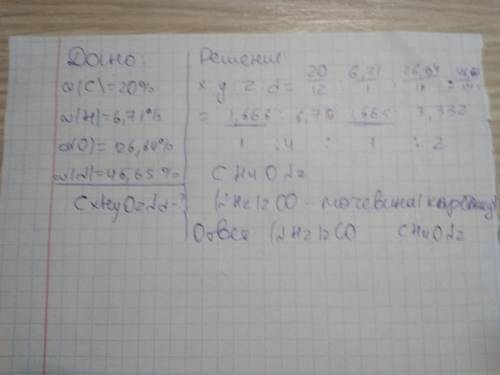 Дано:
ω(C)=20%
ω(H)=6,71%
ω(O)=26,64%
ω(N)=46,65%
CxHyOzNd-?
Решение
x:y:z:d= 20/12 : 6,71/1 : 26,64/16 : 46,65/14 =
= 1,666 : 6,70 : 1,665 : 3,332
1 : 4 : 1 : 2
CH4ON2
(NH2)2CO - мочевина
Ответ (NH2)2CO CH4ON2